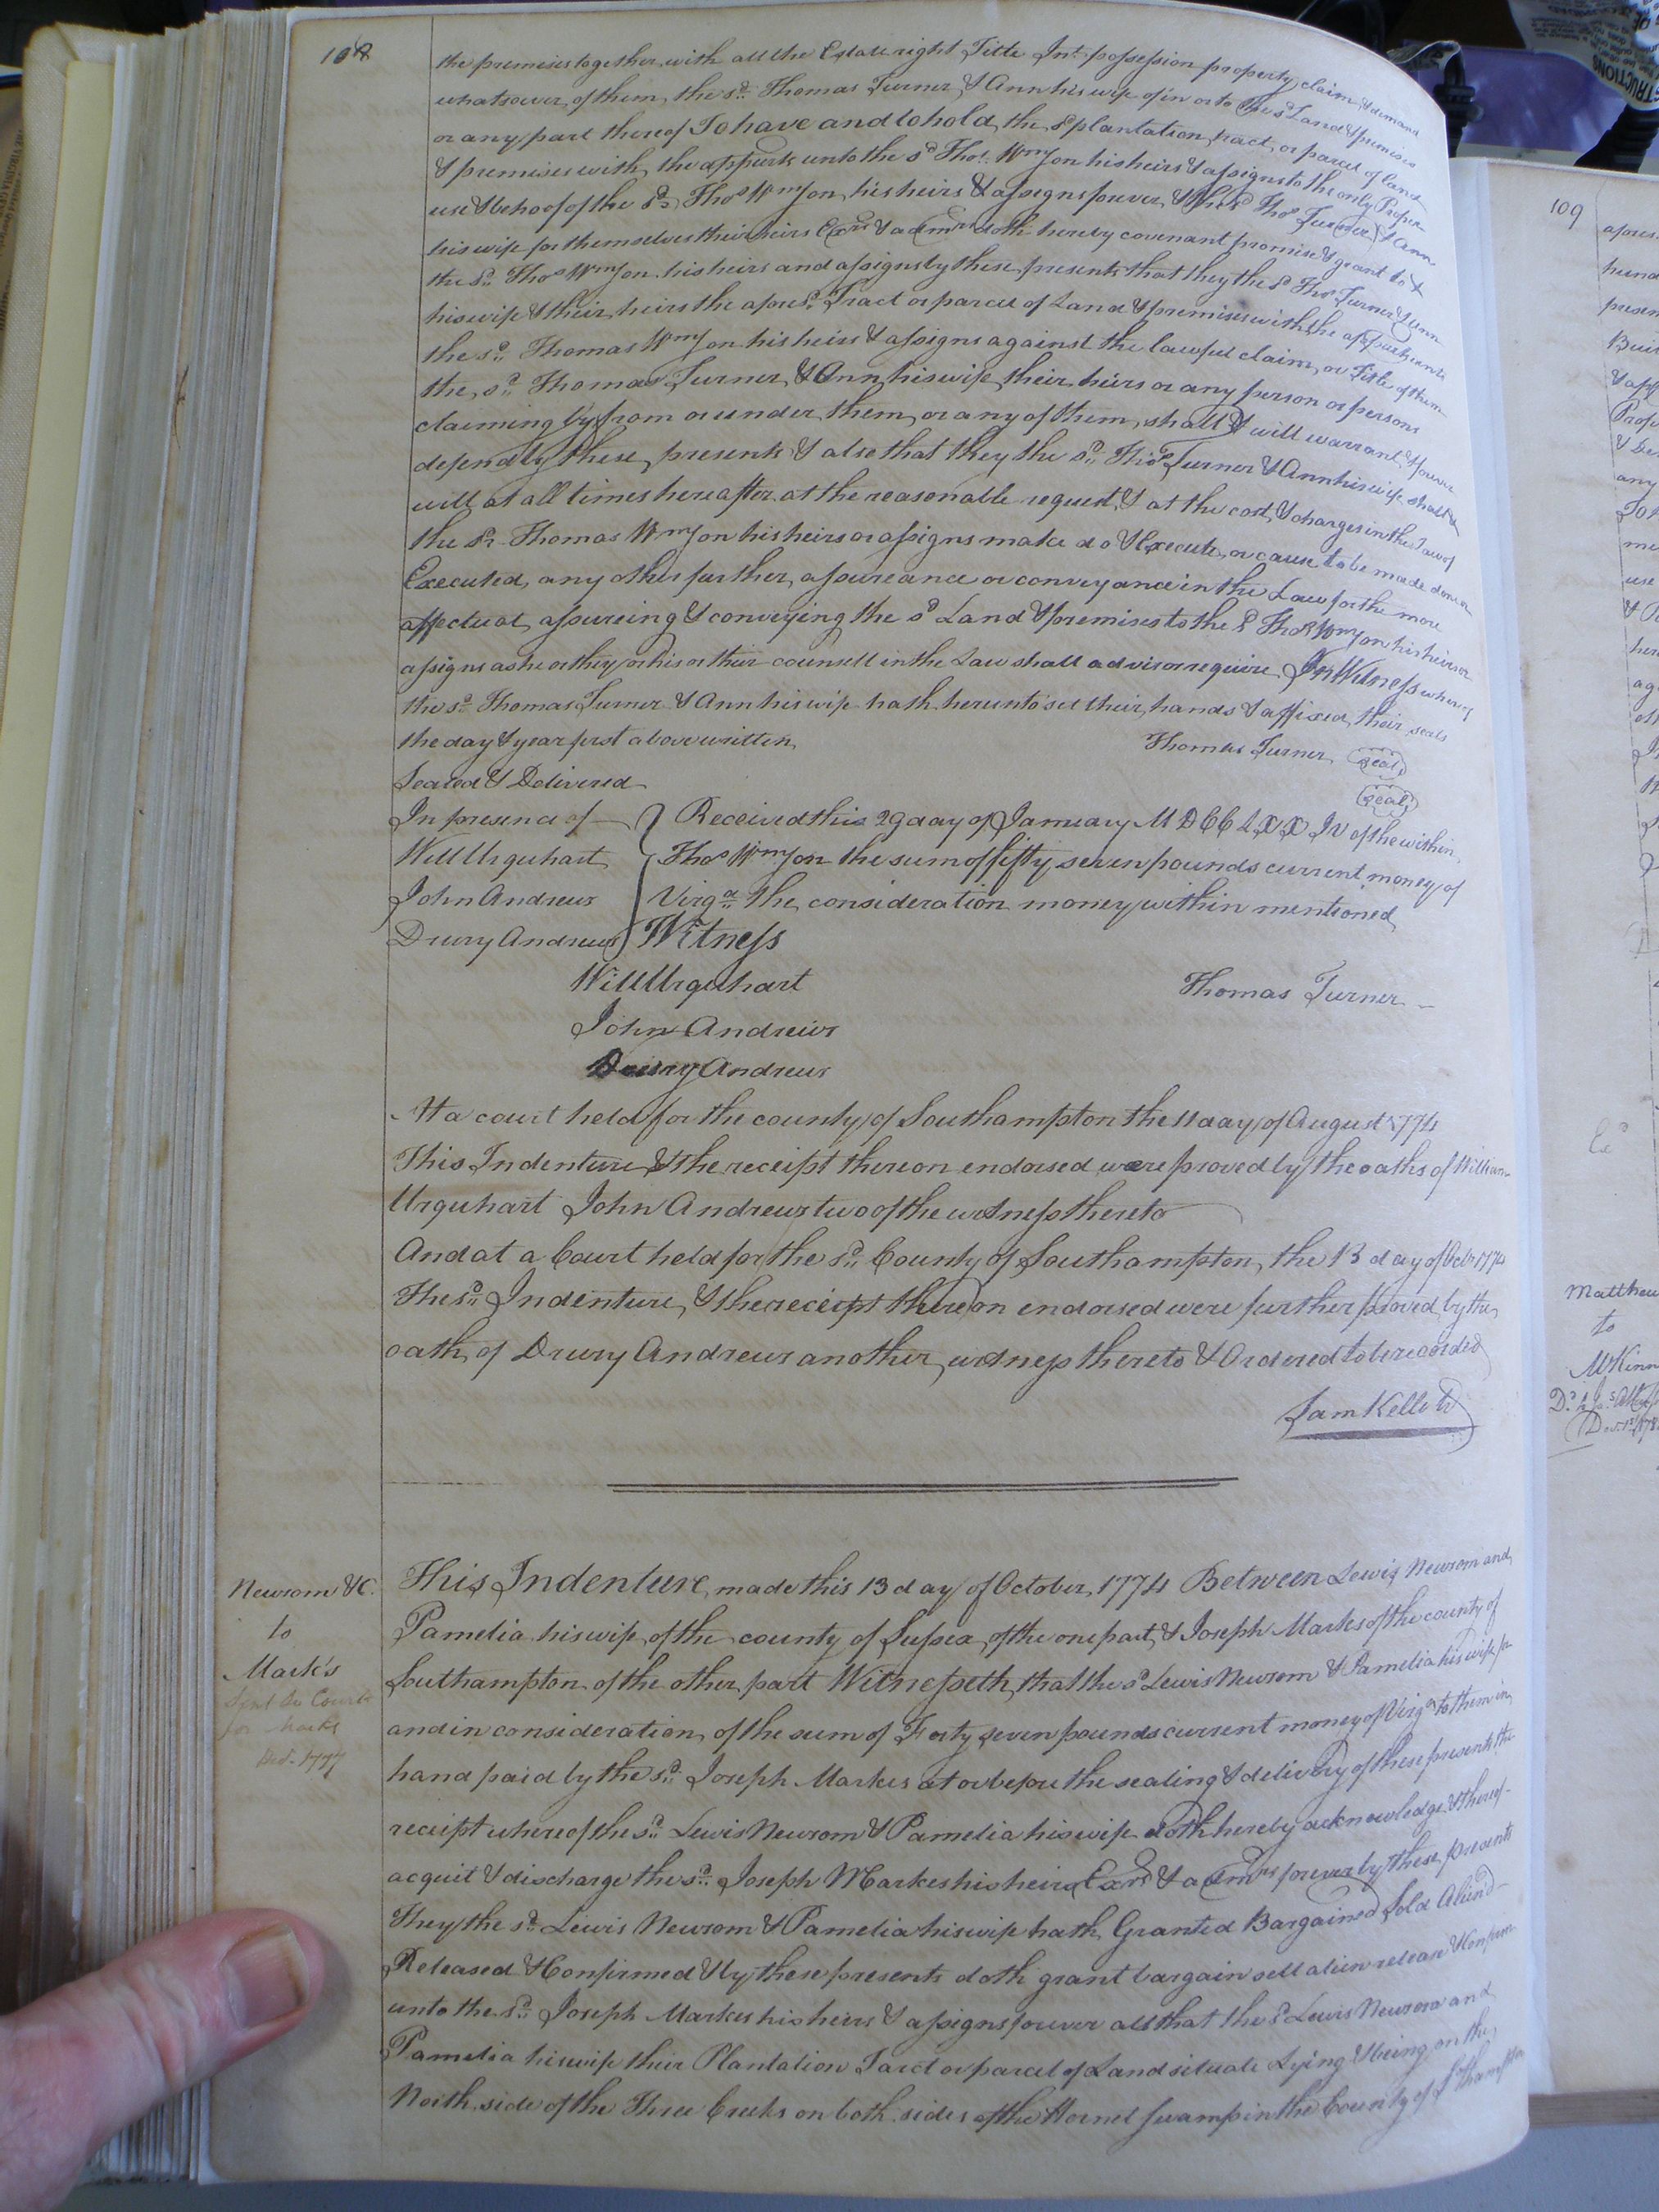 108
the premises together with all the Estate right Title Int. possession property claim & demand
whatsoever of them the sd. Thomas Turner & Ann his wife of in or to the sd Land & premises
or any part thereof To have and to hold the sd plantation tract or parcel of land
& premises with the appurts unto the sd Thos. Wmson his heirs & assigns to the only Proper
use & behoof of the sd. Thos Wmson his heirs & assigns forever & the sd Thos Turner & Ann
his wife for themselves their heirs Exrs & admrs doth hereby covenant promise & grant to &
the sd. Thos Wmson his heirs and assigns by these presents that they the sd Thos Turner & Ann
his wife & their heirs the aforesd. Tract or parcel of Land & premises with the appurtenants
the sd. Thomas Wmson his heirs & assigns against the lawful claim or Title of them
the sd. Thomas Turner & Ann his wife their heirs or any person or persons
claiming by from or under them or any of them, shall & will warrant & forever
defend by these presents & also that they the sd. Thos Turner & Ann his wife shall &
will at all times hereafter at the reasonable request & at the cost & charges in the Law of
the sd. Thomas Wmson his heirs or assigns make do & Execute or cause to be made done or
Executed any other further assureance or conveyance in the Law for the more
affectual assureing & conveying the sd Land & premises to the sd Thos Wmson his heirs or
assigns as he or they or his or their counsell in the Law shall advis or require In Witness whereof
the sd. Thomas Turner & Ann his wife hath hereunto set their hands & affixed their seals
the day & year first above written
Thomas Turner (seal)
Sealed & Delivered
(seal)
In presence of
Will Urquhart
John Andrews
Drury Andrews
Received this 29 day of January MDCCLXXIV of the within
Thos Wmson the sum of fifty seven pounds current money of
Virga. the consideration money within mentioned
Witness
Will Urquhart
Thomas Turner
John Andrews
Drury Andrews
At a court held for the county of Southampton the 11 day of August 1774
This Indenture & the receipt thereon endorsed were proved by the oaths of William
Urquhart John Andrews two of the witness thereto
And at a Court held for the sd. County of Southampton the 13 day of Octr 1774
The sd. Indenture & the receipt thereon endorsed were further proved by the
oath of Drury Andrews another witness thereto & Ordered to be recorded
Sam Kello
Newsom &C.
to
Mark's
This Indenture made this 13 day of October 1774 Between Lewis Newsom and
Pamelia his wife of the county of Sussex of the one part & Joseph Markes of the county of
Southampton of the other part Witnesseth that the sd Lewis Newsom & Pamelia his wife fr
and in consideration of the sum of Forty seven pounds current money of Virga to them in
hand paid by the sd. Joseph Markes at or before the sealing & delivery of these presents the
receipt whereof the sd. Lewis Newsom & Pamelia his wife doth hereby acknowledge & thereof
acquit & discharge the sd. Joseph Markes his heirs Exrs & admrs forever by these presents
They the sd. Lewis Newsom & Pamelia his wife hath Granted Bargained Sold Aliend
Released & Confirmed & by these presents doth grant bargain sell alien release & Confirm
unto the sd. Joseph Markes his heirs & assigns forever all that the sd Lewis Newsom and
Pamelia his wife their Plantation Tarct or parcel of Land situate Lying & being on the
North side of the Three Creeks on both sides of the Hornet swamp in the County of Sthampton
109
Matthew
to
McKinn